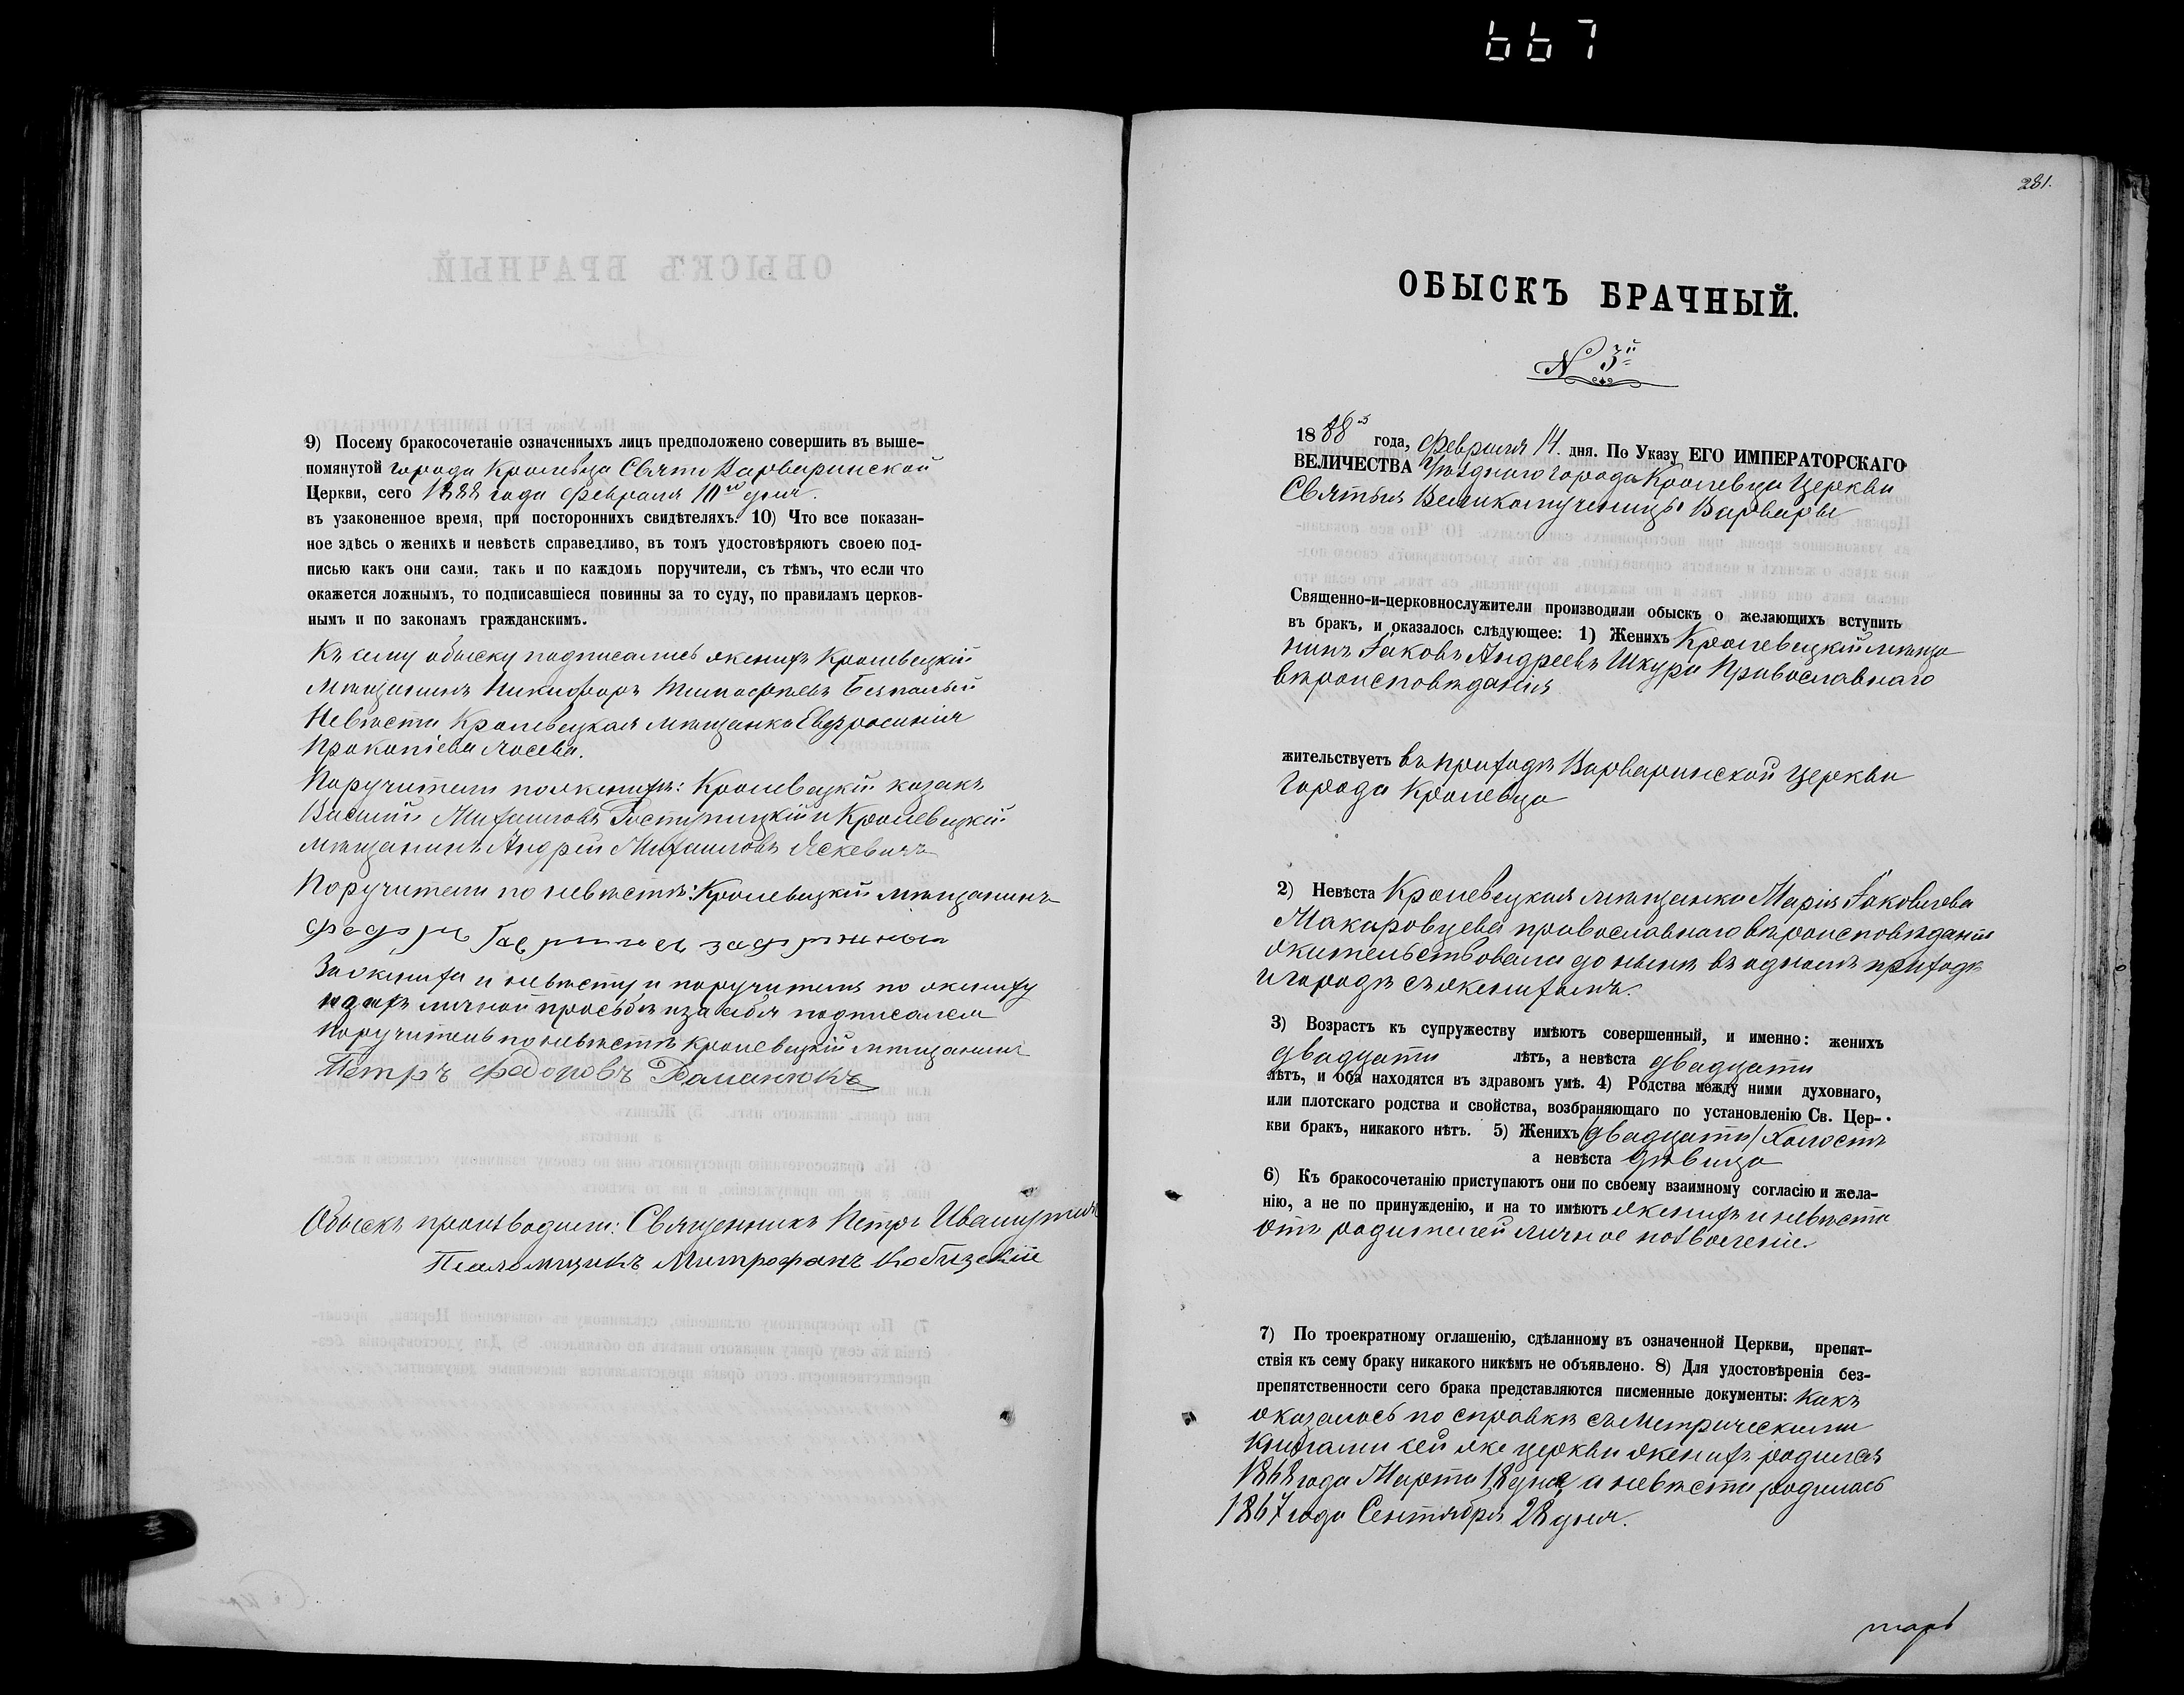 667
9) Посему бракосочетаніе означенныхъ лицъ предположено совершить въ выше-
помянутой города Кролевца Свято Варваринской
Церкви, сего 1888 года Февраля 10го дня.
въ узаконенное время, при постороннихъ свидѣтеляхъ. 10) Что все показан-
ное здѣсь о женихѣ и невѣстѣ справедливо, въ томъ удостовѣряютъ своею под-
писью какъ они сами, такъ и по каждомъ поручители, съ тѣмъ, что если что
окажется ложнымъ, то подписавшіеся повинны за то суду, по правиламъ церков-
нымъ и по законамъ гражданскимъ.
Къ сему обыску подписались женихъ Кролевецкій
мѣщанинъ Никифоръ Тимофѣевъ Безпалый
Невѣста Кролевецкая мѣщанка Евфросинія
Прокопіева Лосева.
Поручители по женихѣ: Кролевецкій козакъ
Василій Михаиловъ и Кролевецкій
мѣщанинъ Андрей Михаиловъ Яскевичъ
Поручители по невѣстѣ: Кролевецкій мѣщанинъ
За жениха и невѣсту и поручителя по жениху
ихъ личной просьбѣ и за себя подписался
поручитель по невѣстѣ Кролевецкій мѣщанинъ
Петръ Федоровъ Романюкъ
Обыскъ производили: Священникъ Петръ
Псаломщикъ Митрофанъ
281.
ОБЫСКЪ БРАЧНЫЙ.
N 3й
1888 года, Февраля 14. дня. По Указу ЕГО ИМПЕРАТОРСКАГО
ВЕЛИЧЕСТВА Уѣзднаго города Кролевца Церкви
Святыя Великомученицы Варвары
Священно-и-церковнослужители производили обыскъ о желающихъ вступить
въ бракъ, и оказалось слѣдующее: 1) Женихъ Кролевецкій мѣща
нинъ Іаковъ Андреевъ Шкура Православнаго
вѣроисповѣданія
жительствуетъ въ приходѣ Варваринской церкви
города Кролевца
2) Невѣста Кролевецкая мѣщанка Марія Іаковлева
Макаровцева православнаго вѣроисповѣданія
жительствовала до нынѣ въ одномъ приходѣ
и городѣ съ женихомъ.
3) Возрастъ къ супружеству имѣютъ совершенный, и именно: женихъ
двадцати лѣтъ, а невѣста двадцати
лѣтъ, и оба находятся въ здравомъ умѣ. 4) Родства между ними духовнаго,
или плотскаго родства и свойства, возбраняющаго по установленію Св. Цер-
кви бракъ, никакого нѣтъ. 5) Женихъ /двадцати/ Холостъ
а невѣста дѣвица
6) Къ бракосочетанію приступаютъ они по своему взаимному согласію и жела-
нію, а не по принужденію, и на то имѣютъ женихъ и невѣста
отъ родителей личное позволеніе.
7) По троекратному оглашенію, сдѣланному въ означенной Церкви, препят-
ствія къ сему браку никакого никѣмъ не объявлено. 8) Для удостовѣренія без-
препятственности сего брака представляются писменные документы: Какъ
оказалось по справкѣ съ метрическими
книгами сей же церкви женихъ родился
1868 года Марта 18 дня, а невѣста родилась
1867 года Сентября 28 дня.